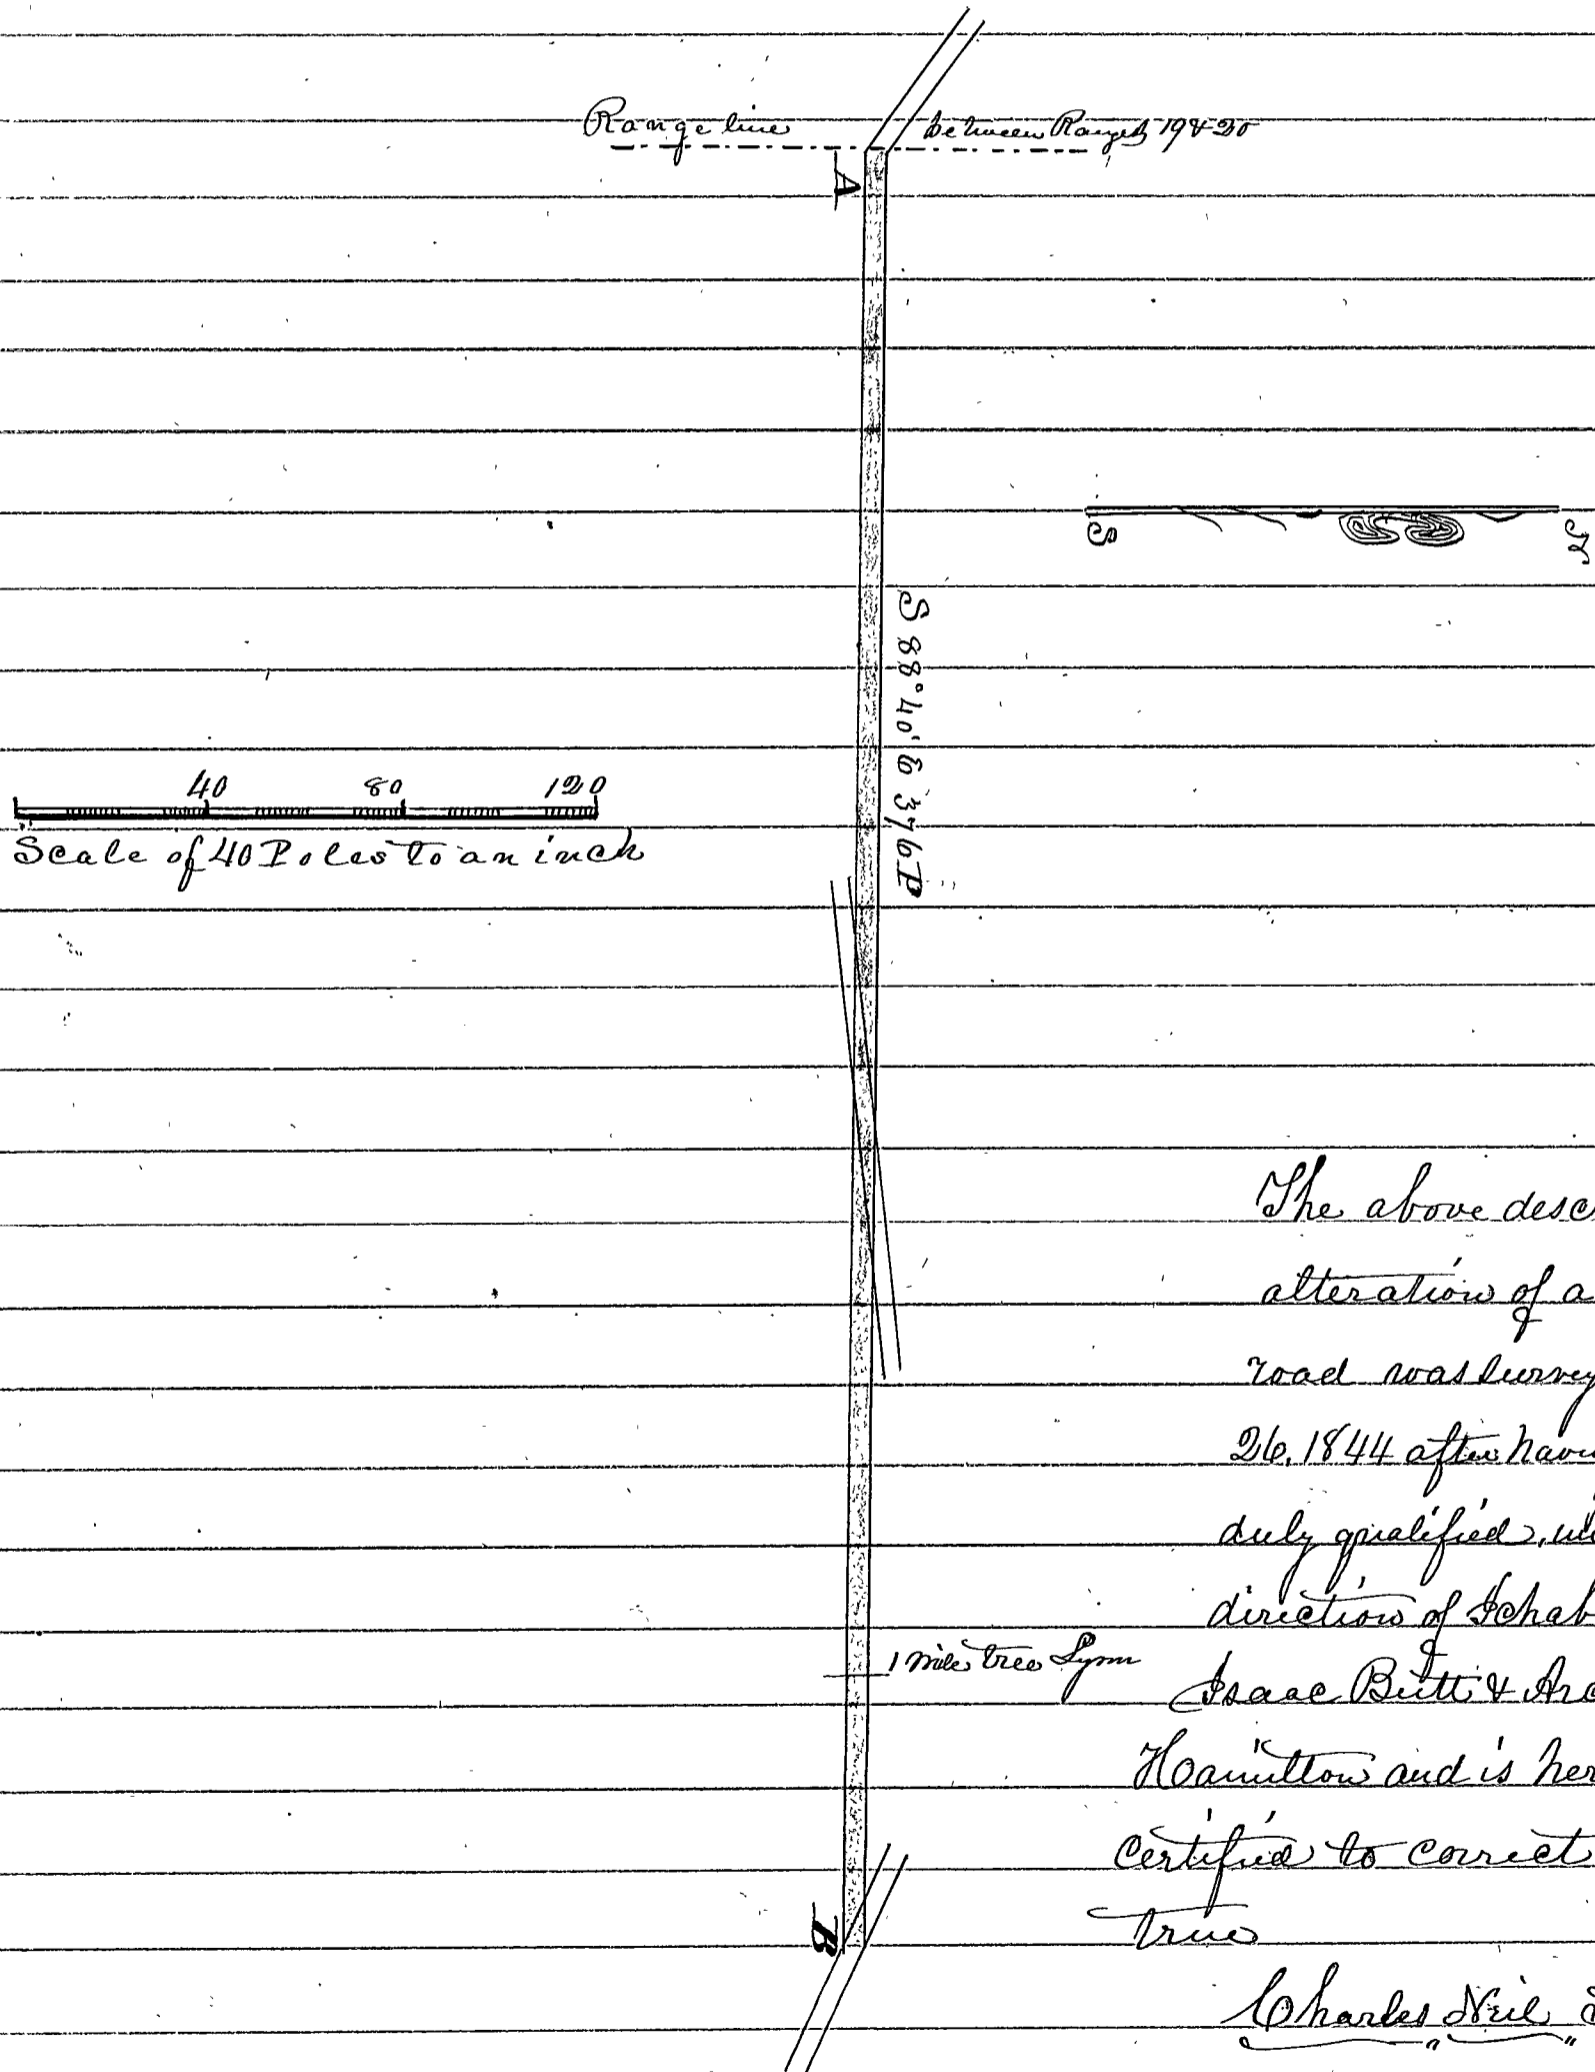 Range line between Ranges 19 & 20
A
S N
S 88° 40' E 376 P
40 80 120
Scale of 40 Poles to an inch
The above desc
alteration of a
road was survey
26, 1844 after havi
duly qualified, un
direction of Ichab
1 mile tree Lynn
Isaac Butt & Arc
Hamilton and is her
certified to correct
true
B
Charles Neil